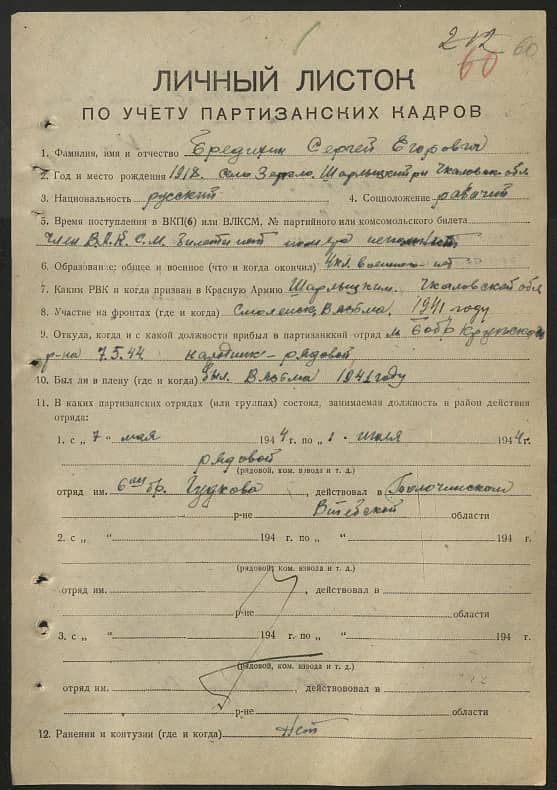 212 60
60
ЛИЧНЫЙ ЛИСТОК
ПО УЧЕТУ ПАРТИЗАНСКИХ КАДРОВ
1. Фамилия, имя и отчество Бредихин Сергей Егорович
2. Год и место рождения 1918. село Зеркло. Шарлыцкий р-н Чкаловск. обл
3. Национальность русский 4. Соцположение рабочий
5. Время поступления в ВКП(б) или ВЛКСМ, № партийного или комсомольского билета
член В.Л.К.С.М. билета нет
6. Образование: общее и военное (что и когда окончил) 4 кл. военного - нет
7. Каким РВК и когда призван в Красную Армию Шарлыцким. Чкаловской обл
8. Участие на фронтах (где и когда) Смоленск, Вязьма. 1941 году
9. Откуда, когда и с какой должности прибыл в партизанккий отряд 6 обр Крупского
р-на 7.5.44 рядовой
10. Был ли в плену (где и когда) был. Вязьма 1941 году
11. В каких партизанских отрядах (или группах) состоял, занимаемая должность и район действия
отряда:
1. с „ 7 “ мая 1944 г. по „ 1 “ июля 1944 г.
рядовой
(рядовой, ком. взвода и т. д.)
отряд им. 6 бр. Гудкова, действовал в Толочинском
р-не Витебской области
2. с „ “ 194 г. по „ “ 194 г.
(рядовой, ком. взвода и т. д.)
отряд им. , действовал в
р-не области
3. с „ “ 194 г. по „ “ 194 г.
(рядовой, ком. взвода и т. д.)
отряд им. , действововал в
р-не области
12. Ранения и контузии (где и когда) Нет